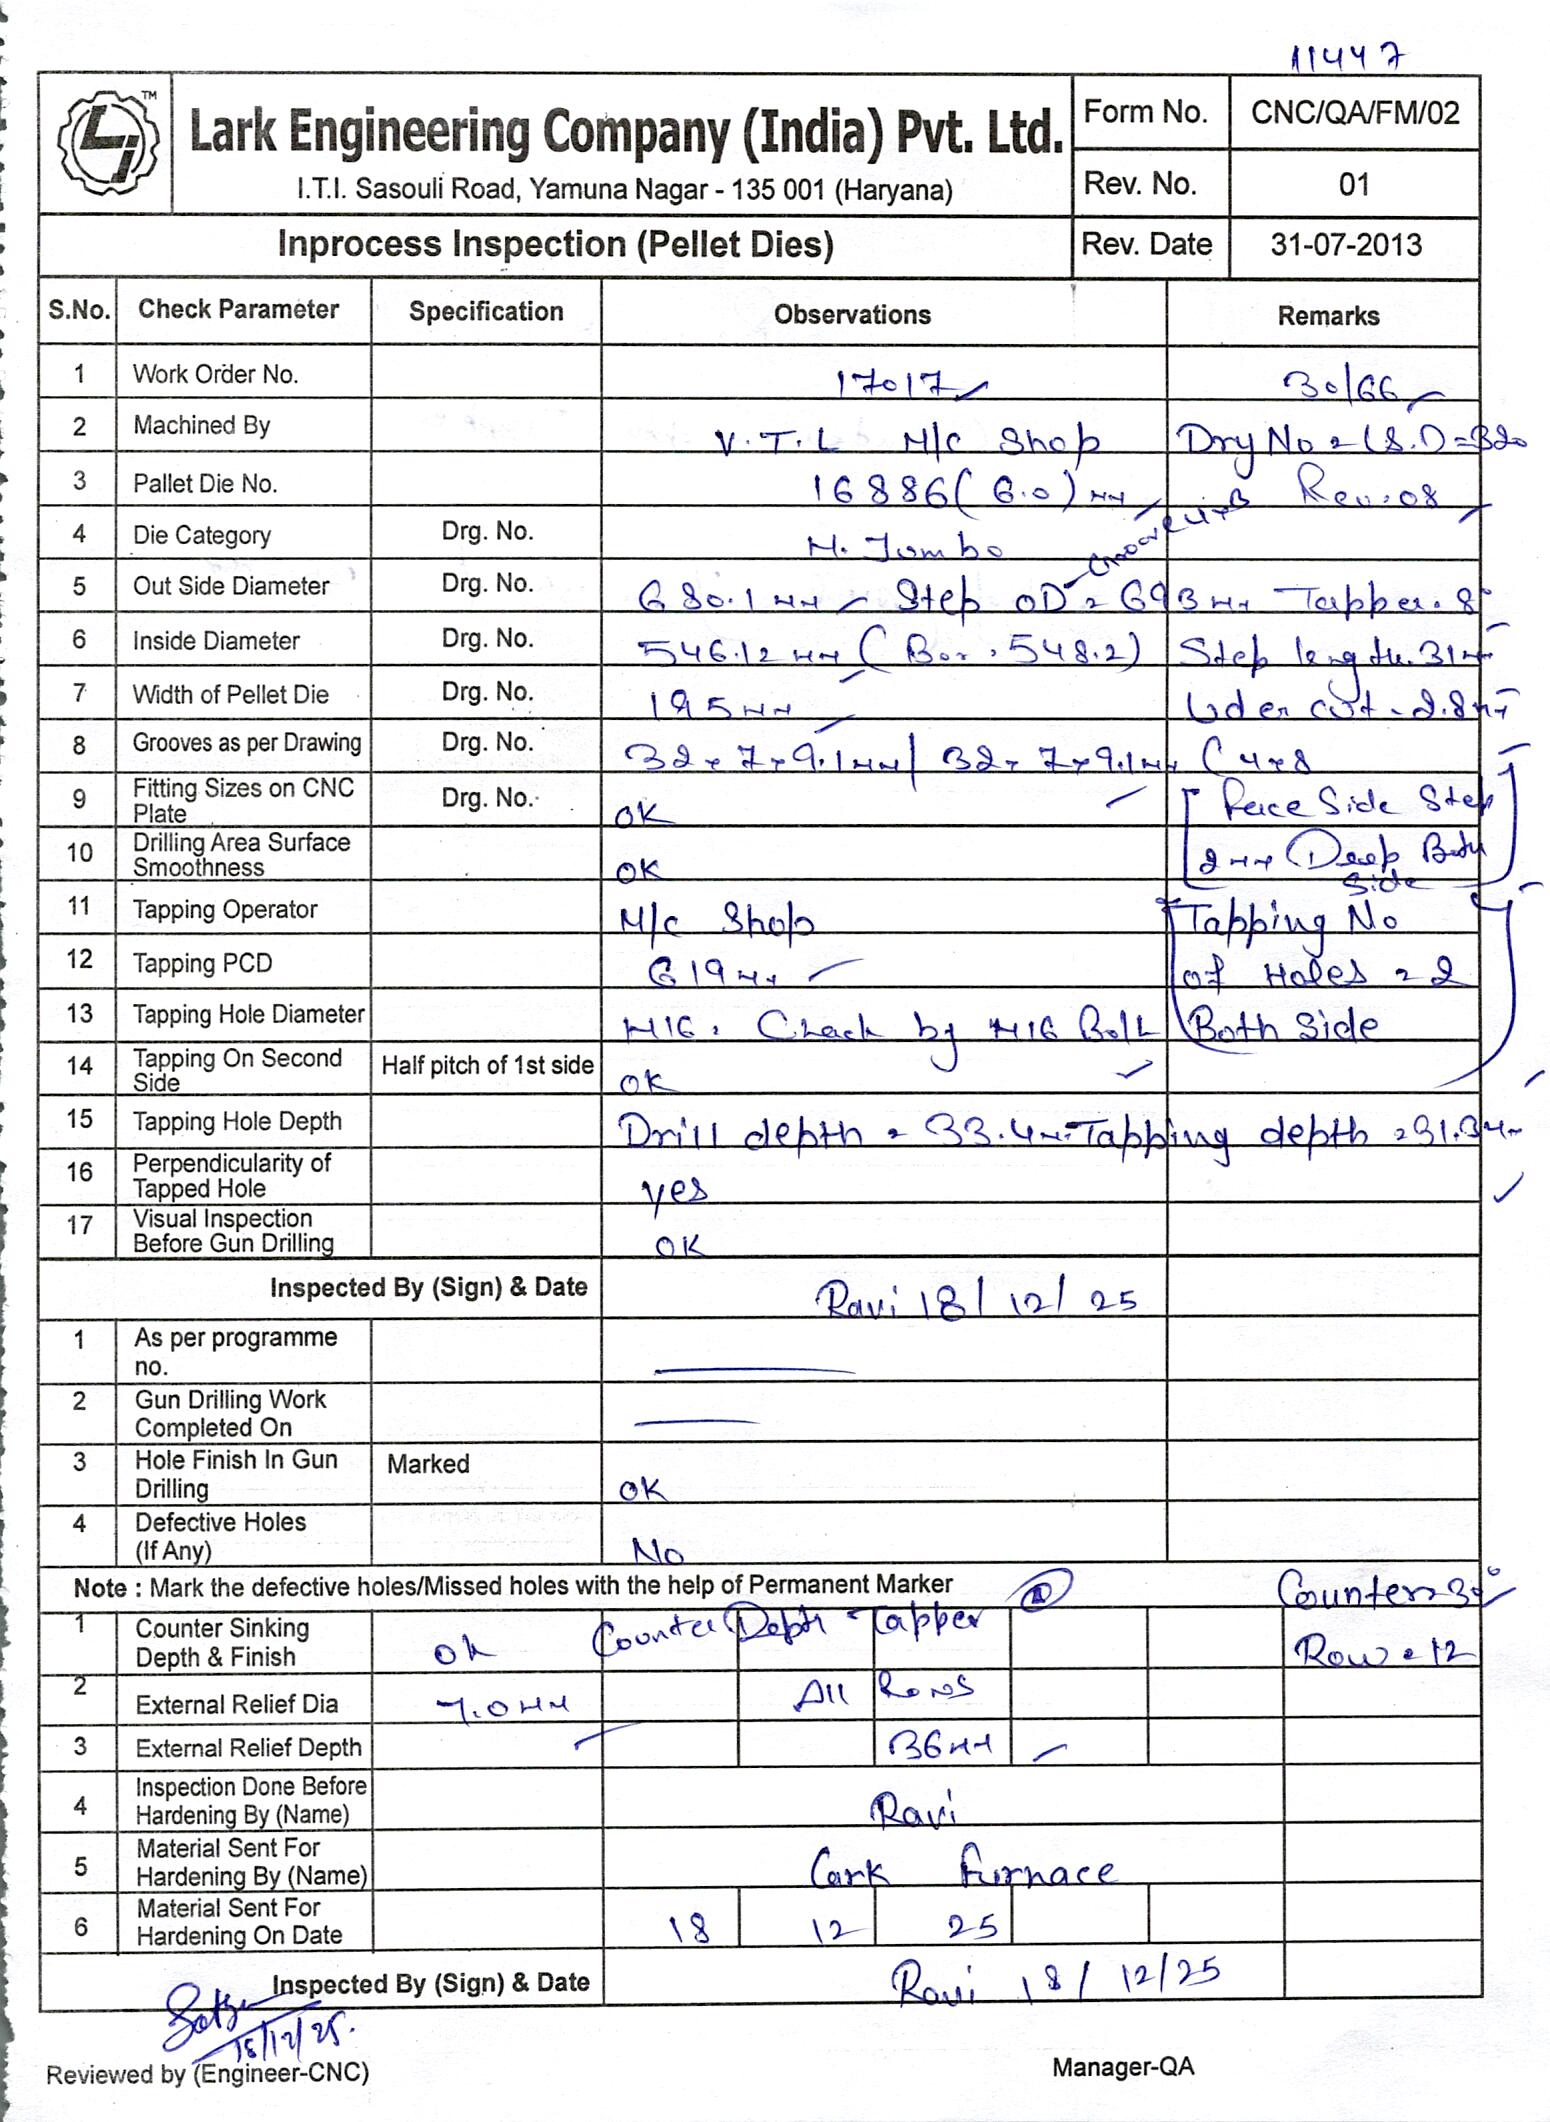 11447
TM
Lark Engineering Company (India) Pvt. Ltd.
I.T.I. Sasouli Road, Yamuna Nagar - 135 001 (Haryana)
Form No. CNC/QA/FM/02
Rev. No. 01
Inprocess Inspection (Pellet Dies) Rev. Date 31-07-2013
S.No. Check Parameter Specification Observations Remarks
1 Work Order No. 17017 30/66
2 Machined By V.T.L M/c Shop Drg No = L8.D=320
3 Pallet Die No. 16886 (6.0) mm Rev:08
4 Die Category Drg. No. M. Jumbo Groove
5 Out Side Diameter Drg. No. 680.1 mm Step OD = 693 mm Tapper. 8°
6 Inside Diameter Drg. No. 546.12 mm (Bor. 548.2) Step length. 31mm
7 Width of Pellet Die Drg. No. 195 mm Uder cut - 2.8mm
8 Grooves as per Drawing Drg. No. 32 x 7 x 9.1mm / 32 x 7 x 9.1mm (4x8
9 Fitting Sizes on CNC Plate Drg. No. OK Face Side Step
10 Drilling Area Surface Smoothness OK 2mm Deep Both Side
11 Tapping Operator M/c Shop Tapping No
12 Tapping PCD 619mm of Holes = 2
13 Tapping Hole Diameter M16. Check by M16 Bolt Both Side
14 Tapping On Second Side Half pitch of 1st side OK
15 Tapping Hole Depth Drill depth = 33.4mm Tapping depth = 31.3mm
16 Perpendicularity of Tapped Hole yes
17 Visual Inspection Before Gun Drilling OK
Inspected By (Sign) & Date Ravi 18/12/25
1 As per programme no.
2 Gun Drilling Work Completed On
3 Hole Finish In Gun Drilling Marked OK
4 Defective Holes (If Any) No
Note : Mark the defective holes/Missed holes with the help of Permanent Marker Counter=30°
1 Counter Sinking Depth & Finish ok Counter Depth Tapper Row=12
2 External Relief Dia 7.0mm All Rows
3 External Relief Depth 36mm
4 Inspection Done Before Hardening By (Name) Ravi
5 Material Sent For Hardening By (Name) Lark Furnace
6 Material Sent For Hardening On Date 18 12 25
Inspected By (Sign) & Date Ravi 18/12/25
18/12/25.
Reviewed by (Engineer-CNC) Manager-QA